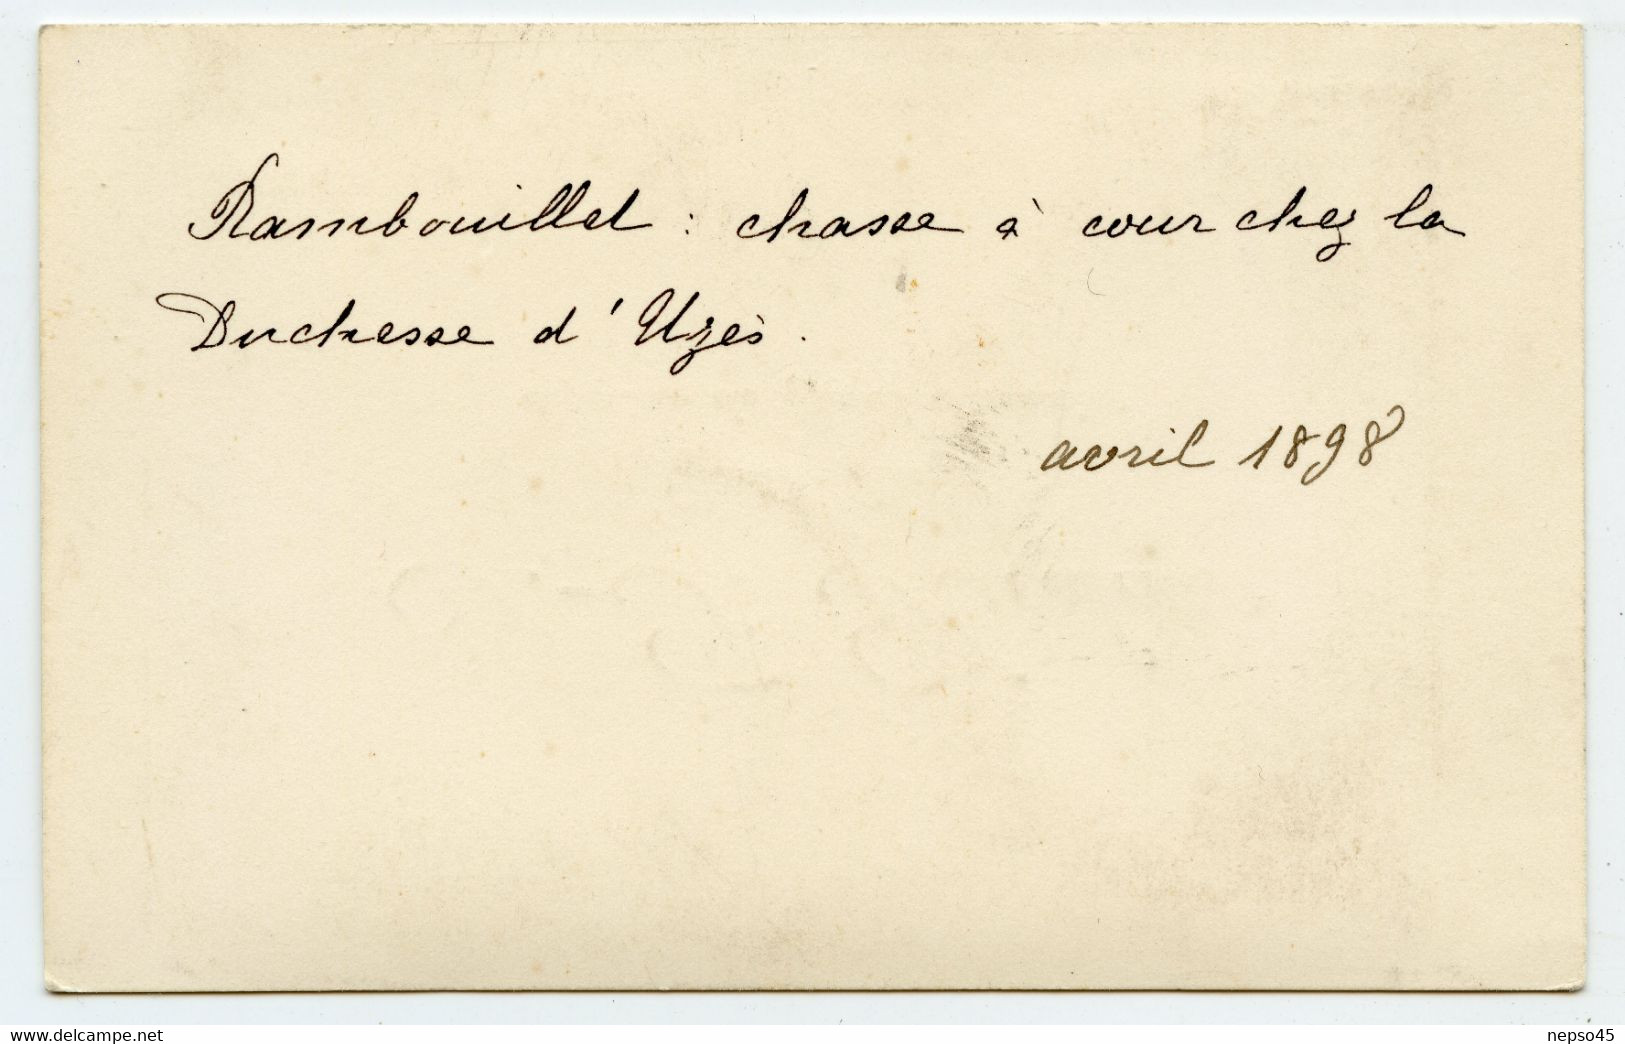 Rambouillet : chasse à cour chez la
Duchesse d'Uzès.
avril 1898
www.delcampe.net
nepso45